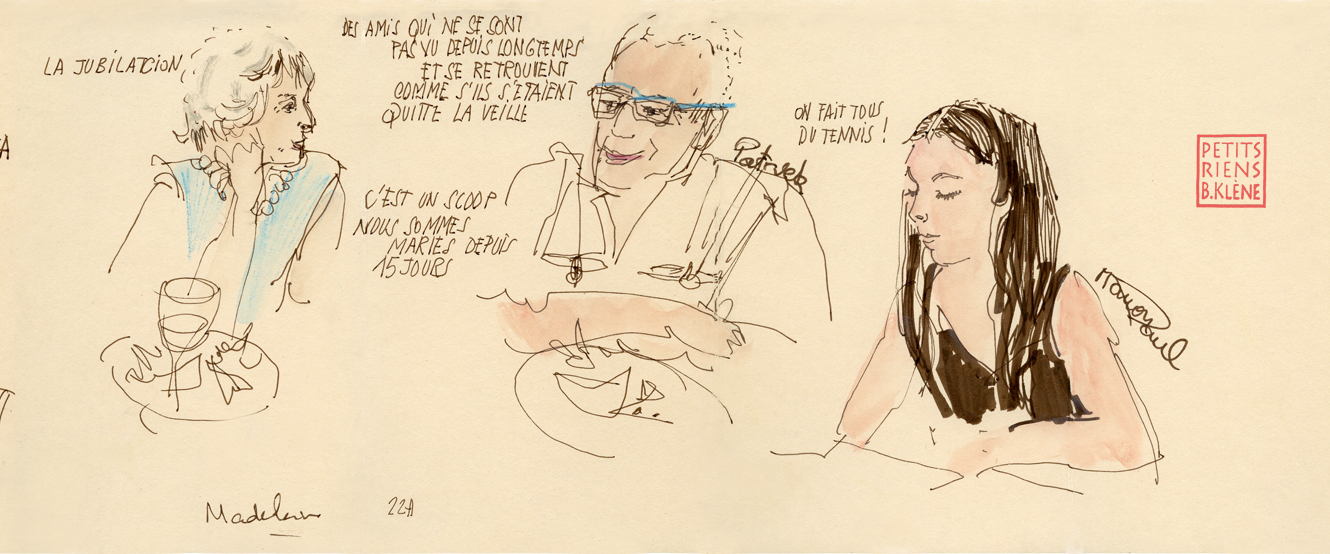 LA JUBILATCION
DES AMIS QUI NE SE SONT
PAS VU DEPUIS LONGTEMPS
ET SE RETROUVENT
COMME S'ILS S'ETAIENT
QUITTE LA VEILLE
C'EST UN SCOOP
NOUS SOMMES
MARIES DEPUIS
15 JOURS
ON FAIT TOUS
DU TENNIS !
PETITS
RIENS
B.KLÈNE
22A